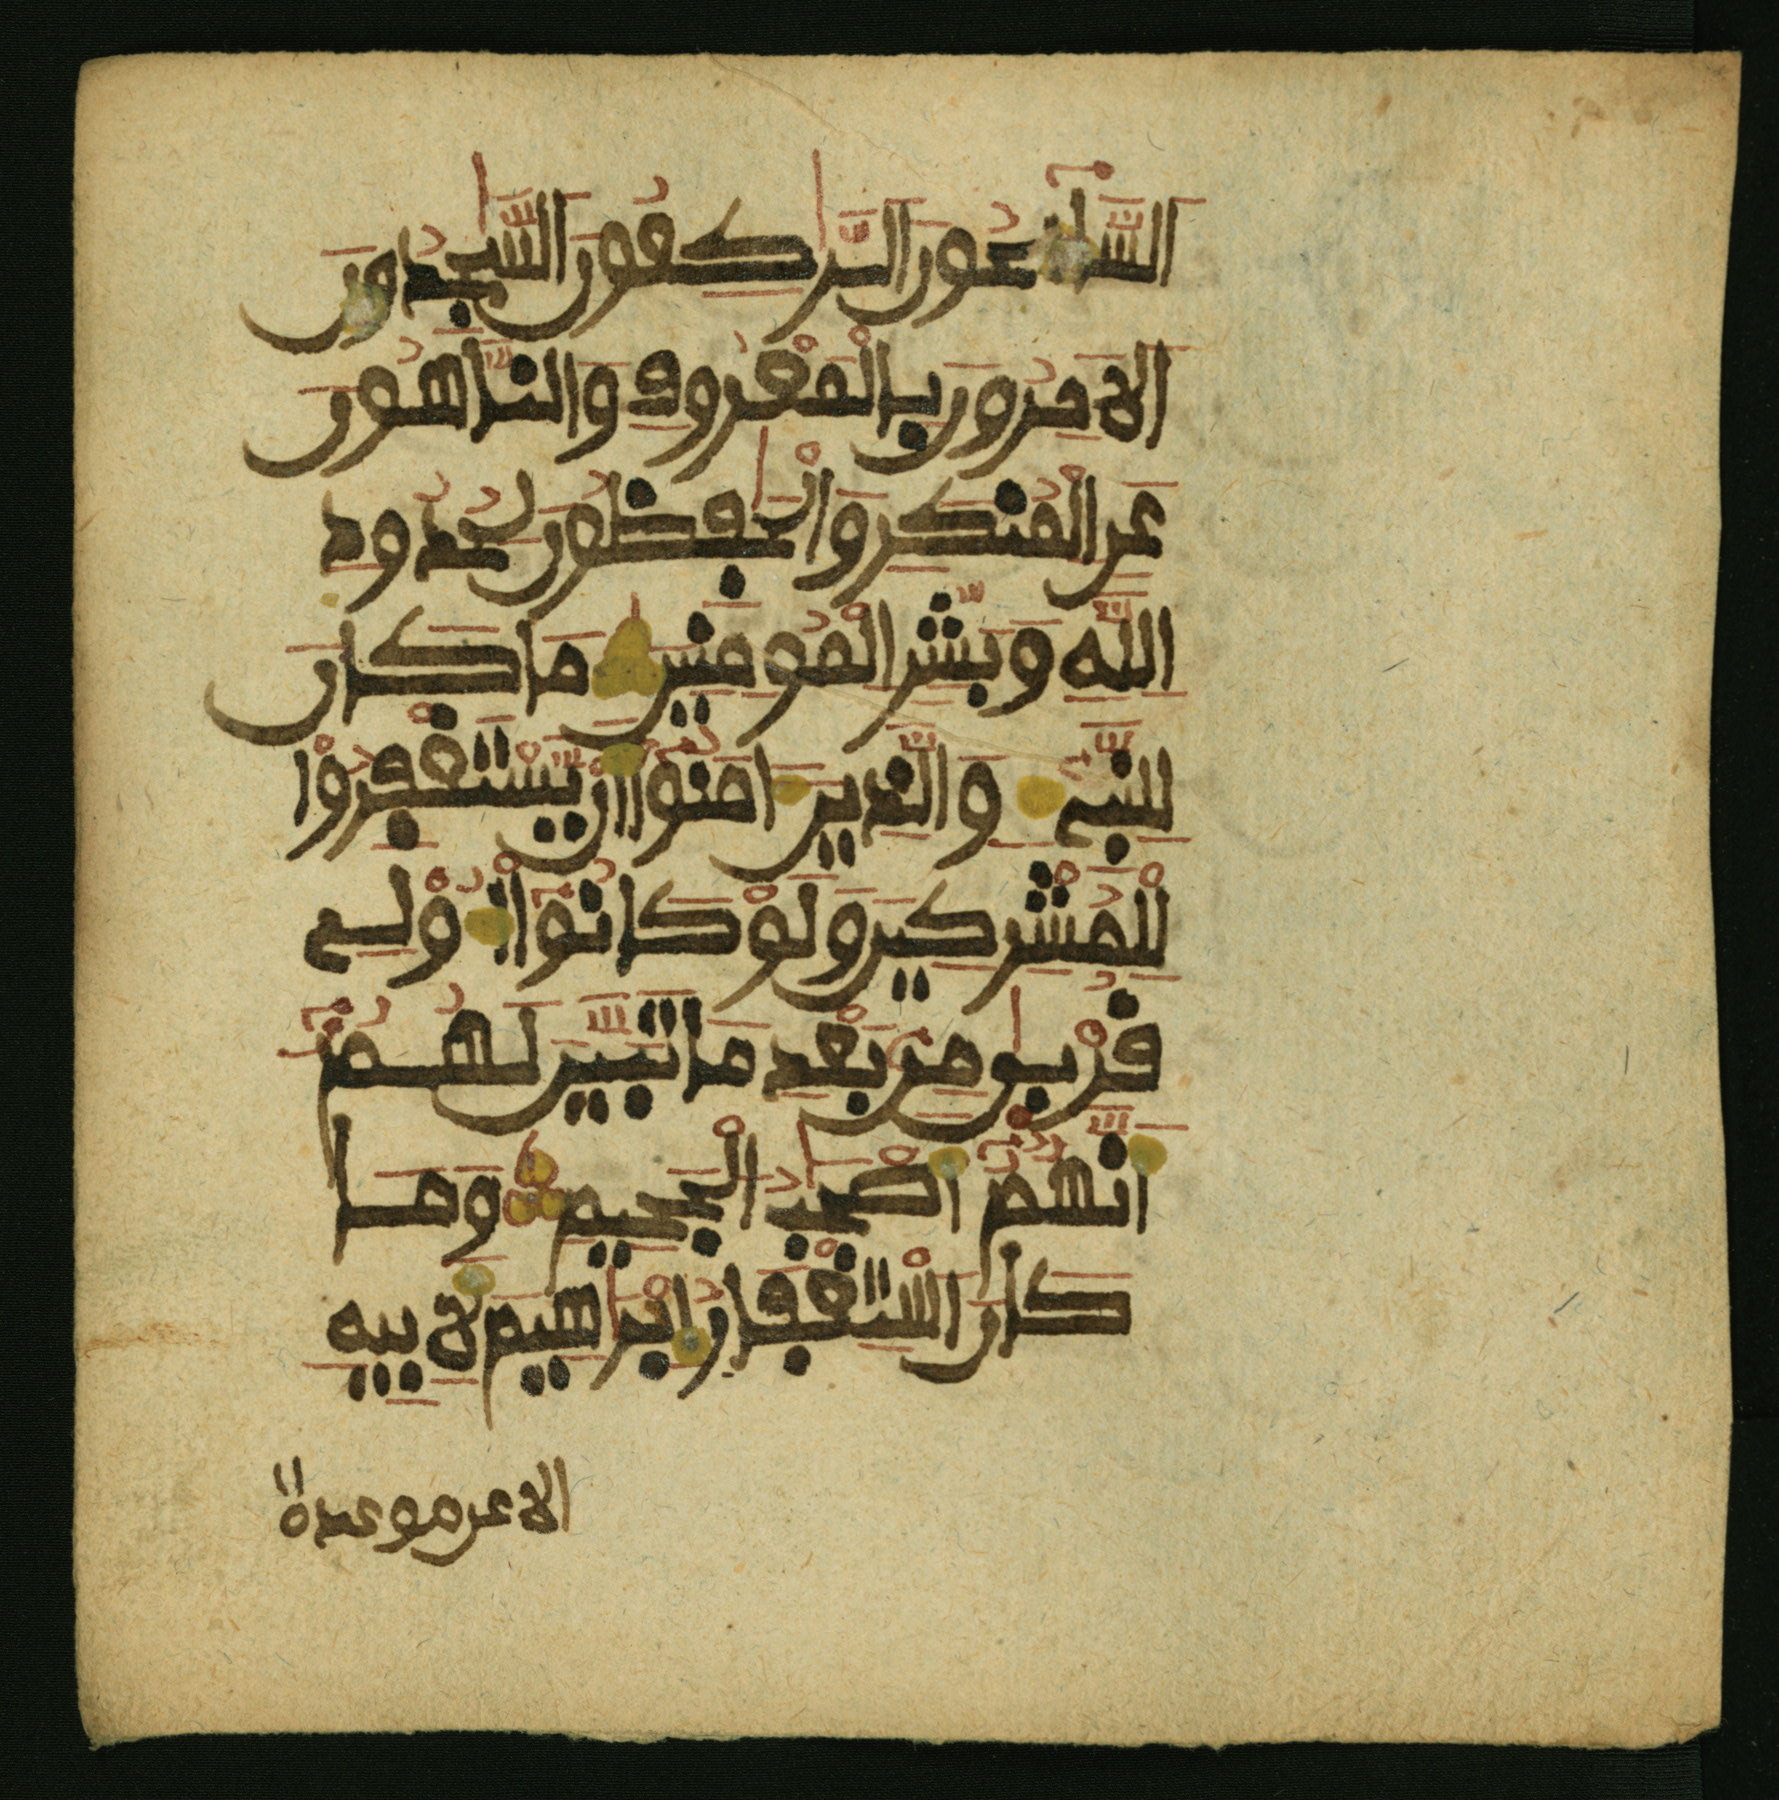 السّٰئحون الرّٰكعون السّٰجدون
الامرون بالمعروف والناهون
عن المنكر والحٰفظون لحدود
الله وبشر المومنين ما كان
للنبيء والذين امنوا ان يستغفروا
للمشركين ولو كانوا اولي
قربى من بعد ما تبين لهم
انهم اصحٰب الجحيم وما
كان استغفار ابرٰهيم لابيه
الا عن موعدة